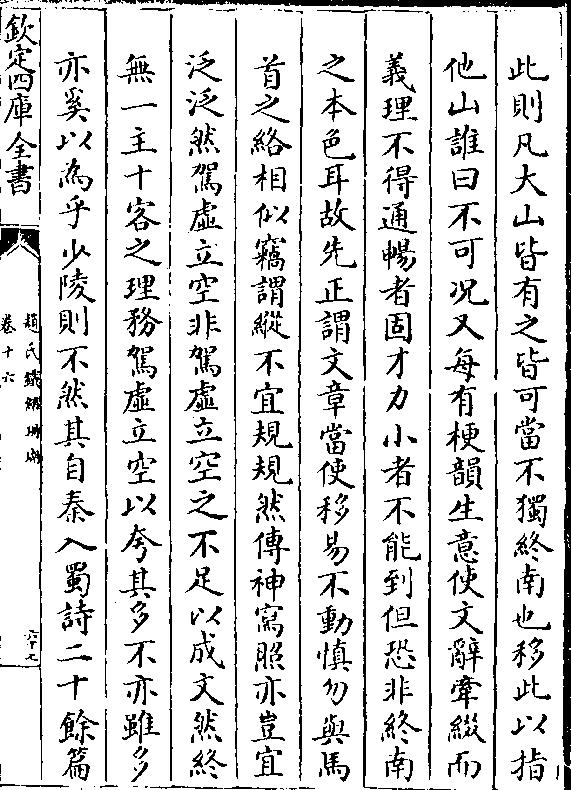 此則凡大山皆有之皆可當不獨終南也移此以指
他山誰曰不可况又每有梗韻生意使文辭牽綴而
義理不得通暢者固才力小者不能到但恐非終南
之本色耳故先正謂文章當使移易不動慎勿與馬
首之絡相似竊謂縱不宜規規然傳神寫照亦豈宜
泛泛然駕虚立空非駕虚立空之不足以成文然終
無一主十客之理務駕虚立空以夸其多不亦雖多
亦奚以為乎少陵則不然其自秦入蜀詩二十餘篇
欽定四庫全書
趙氏鐵網珊瑚
卷十六
六十七